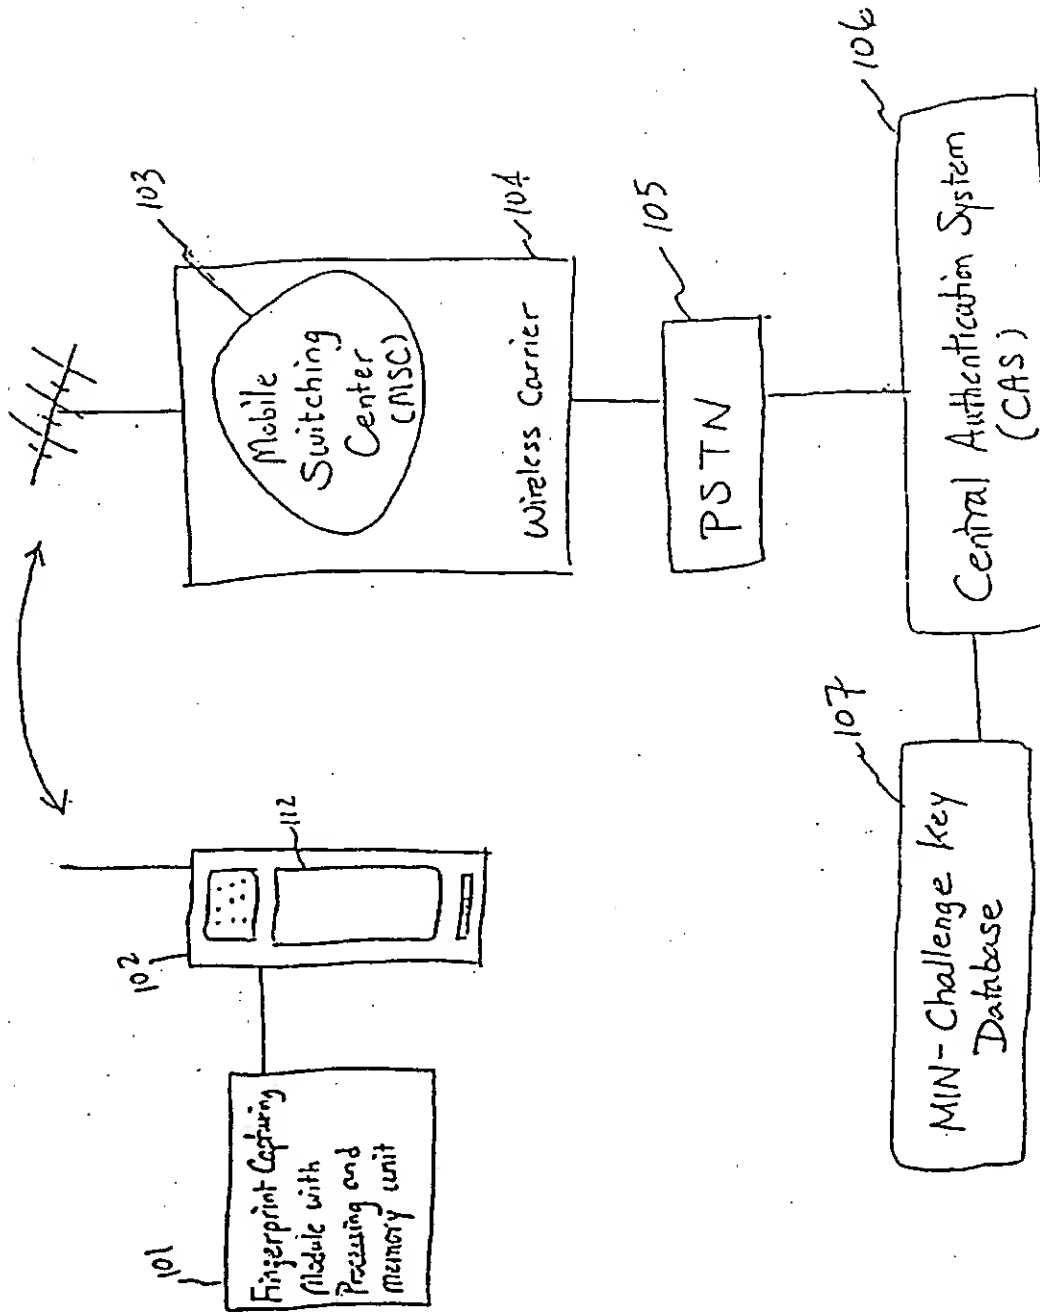 101
Fingerprint Capturing
Module with
Processing and
memory unit
102
112
103
Mobile
Switching
Center
(MSC)
Wireless Carrier
104
105
PSTN
106
Central Authentication System
(CAS)
107
MIN-Challenge Key
Database